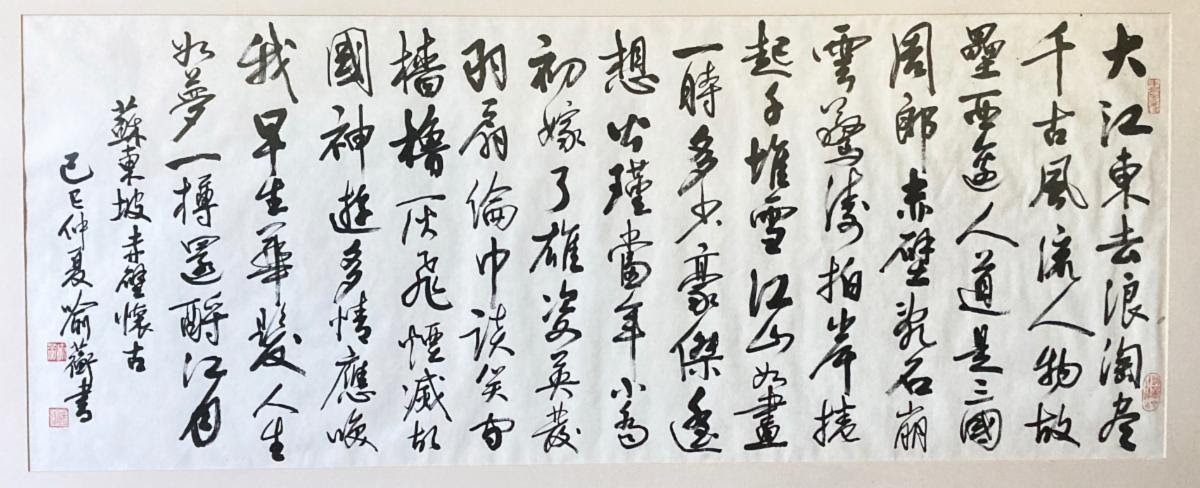 大江東去浪淘盡
千古風流人物故
壘西邊人道是三國
周郎赤壁亂石崩
雲驚濤拍岸捲
起千堆雪江山如畫
一時多少豪傑遙
想公瑾當年小喬
初嫁了雄姿英發
羽扇綸巾談笑間
檣櫓灰飛煙滅故
國神遊多情應
我早生華髮人生
如夢一樽還酹江月
蘇東坡赤壁懷古
己巳仲夏喻蘅書